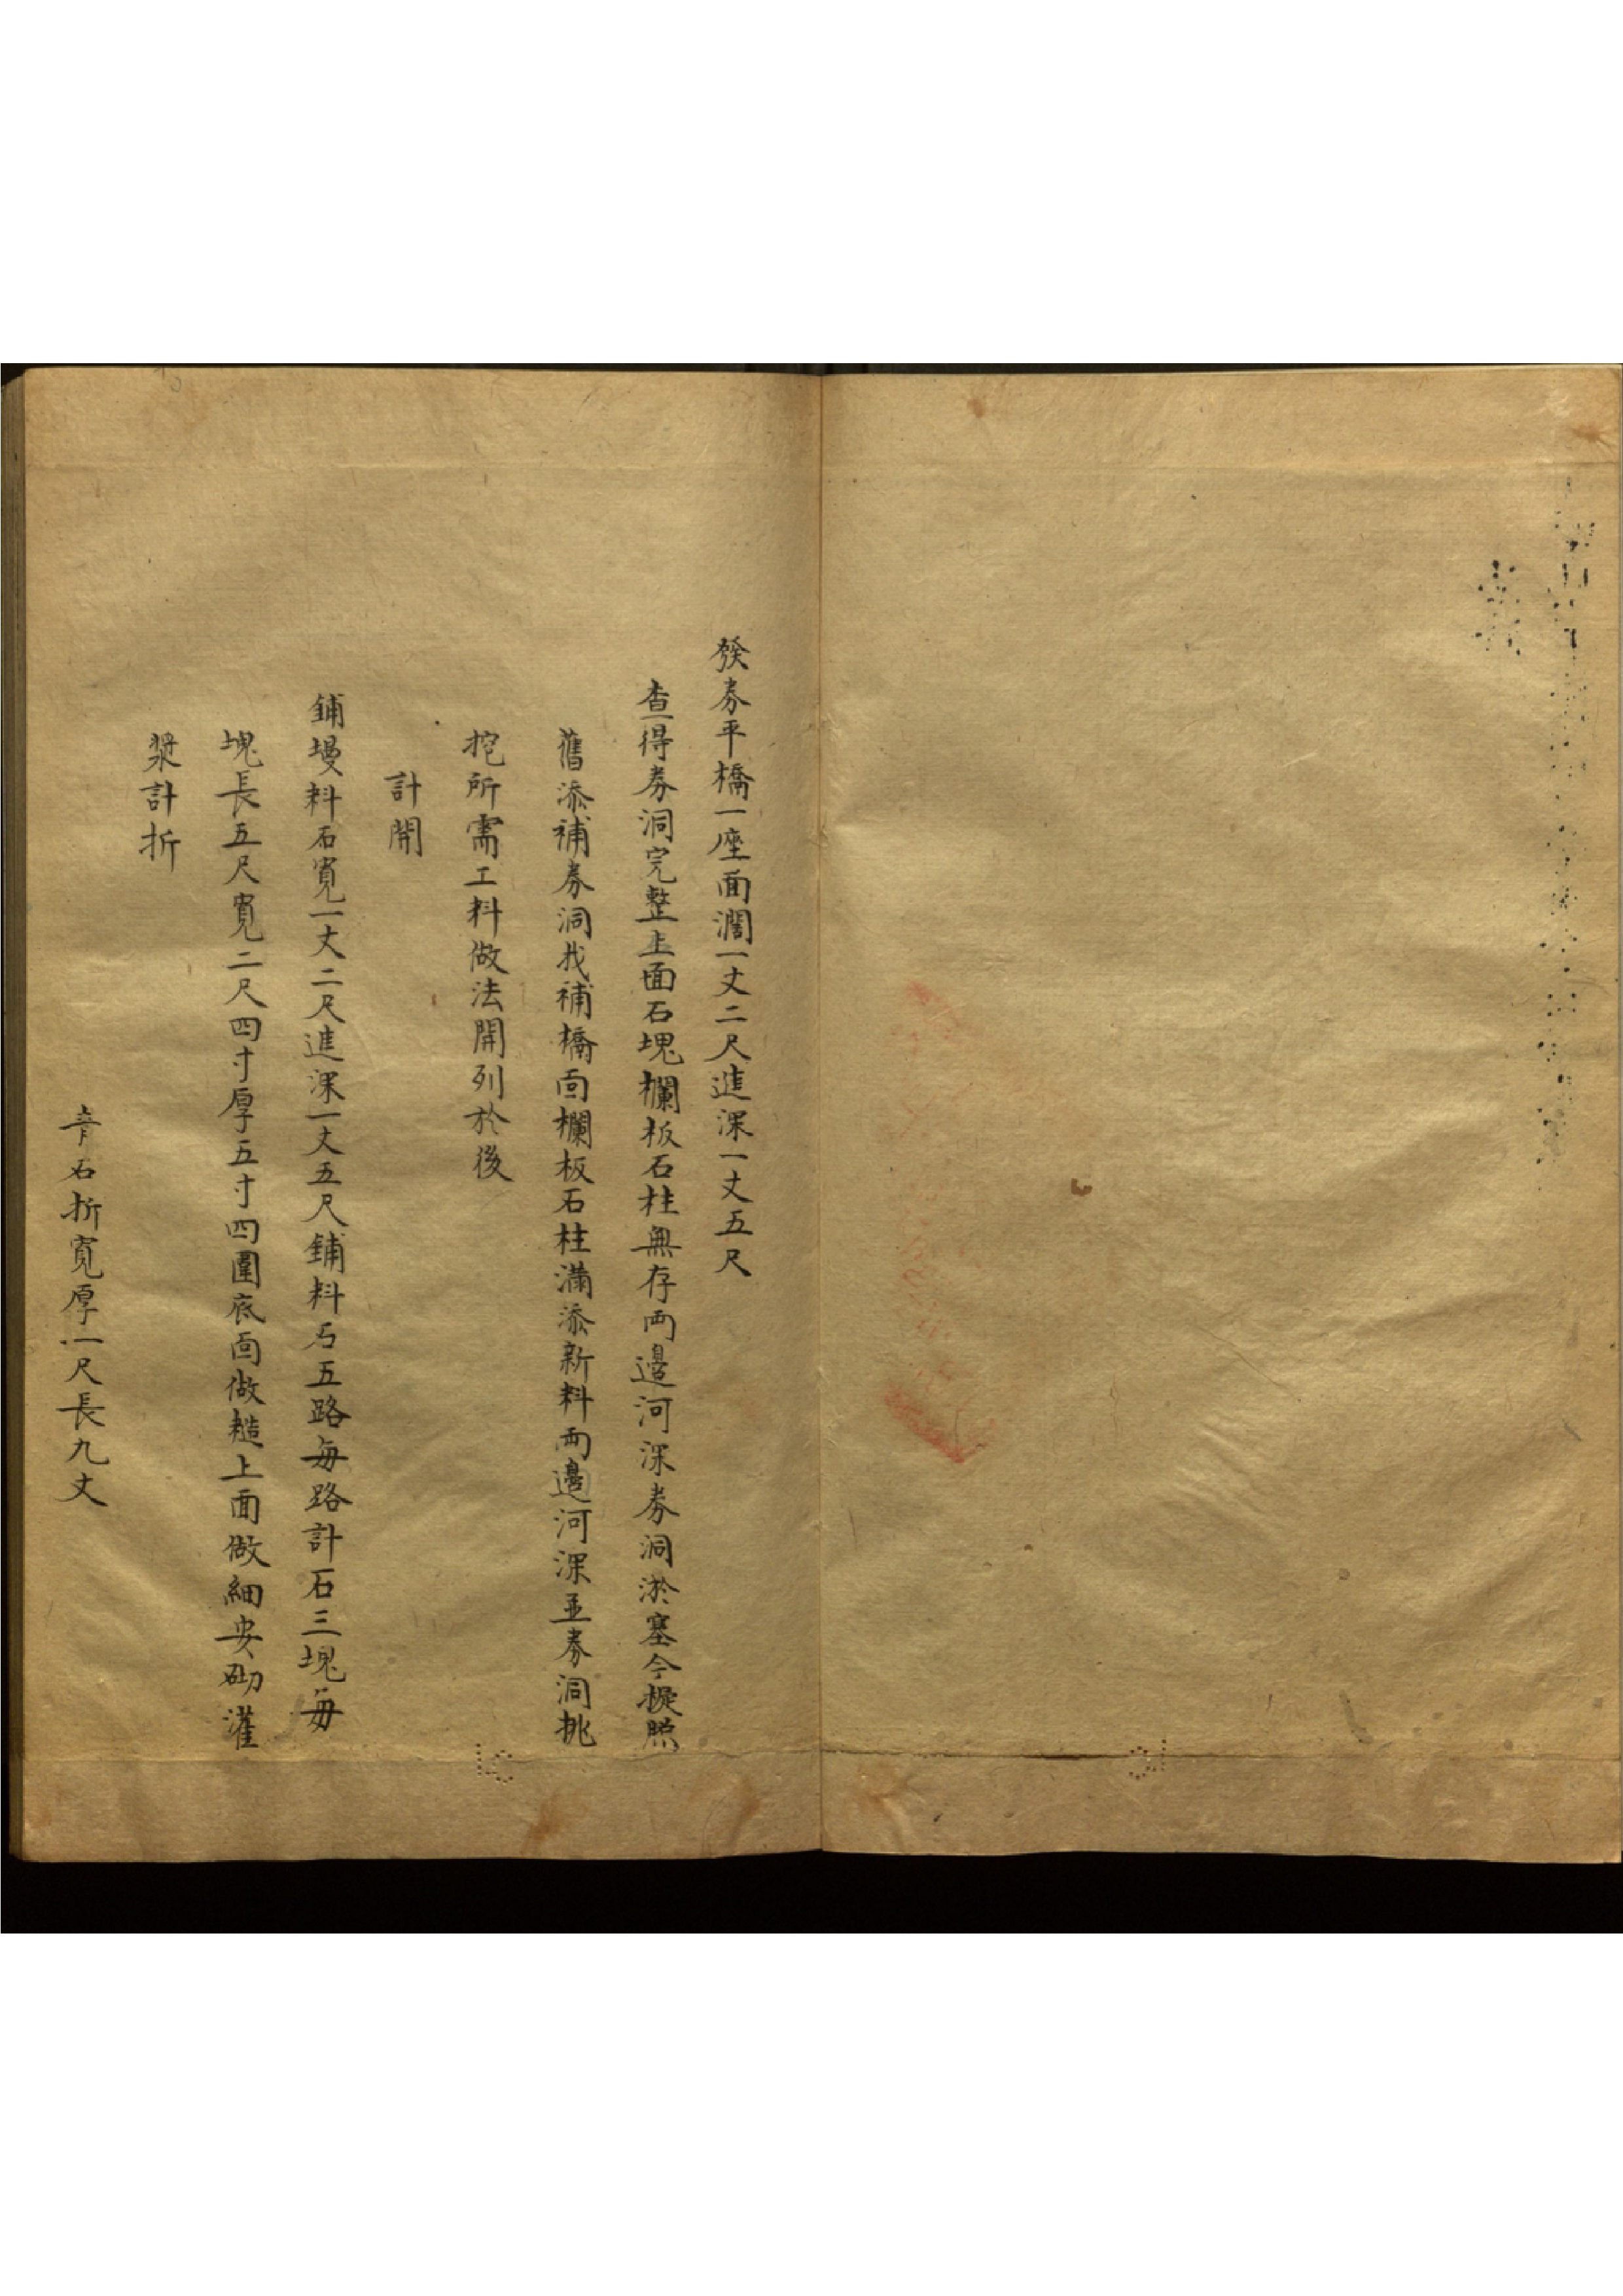 發券平橋一座面濶一丈二尺進深一丈五尺
查得券洞完整上面石塊欄板石柱無存両邊河深券洞淤塞今擬照
舊添補券洞找補橋面欄板石柱滿添新料両邊河深並券洞挑
挖所需工料做法開列於後
計開
鋪墁料石寬一丈二尺進深一丈五尺鋪料石五路每路計石三塊每
塊長五尺寬二尺四寸厚五寸四圍底面做糙上面做細安砌灌
漿計折
青石折寬厚一尺長九丈